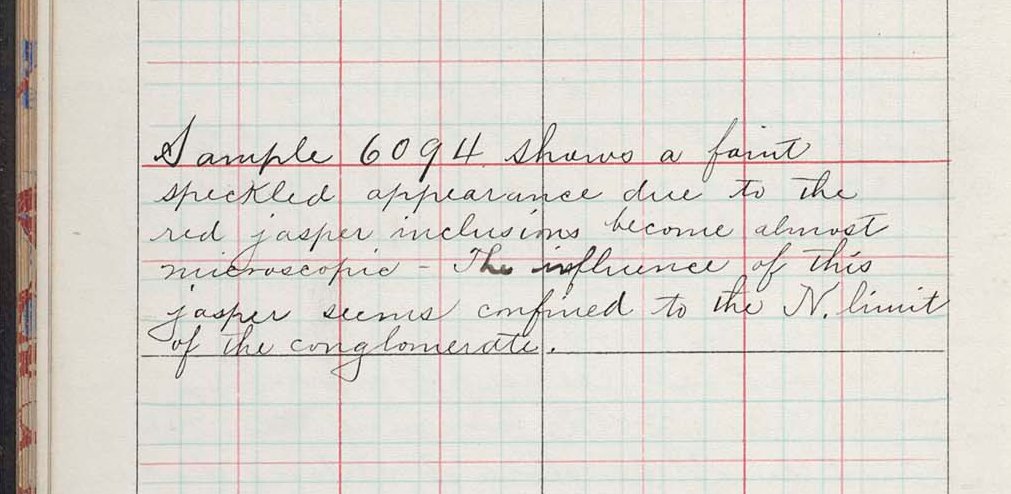 Sample 6094 shows a faint
speckled appearance due to the
red jasper inclusions become almost
microscopic - The influence of this
jasper seems confined to the N. limit
of the conglomerate.